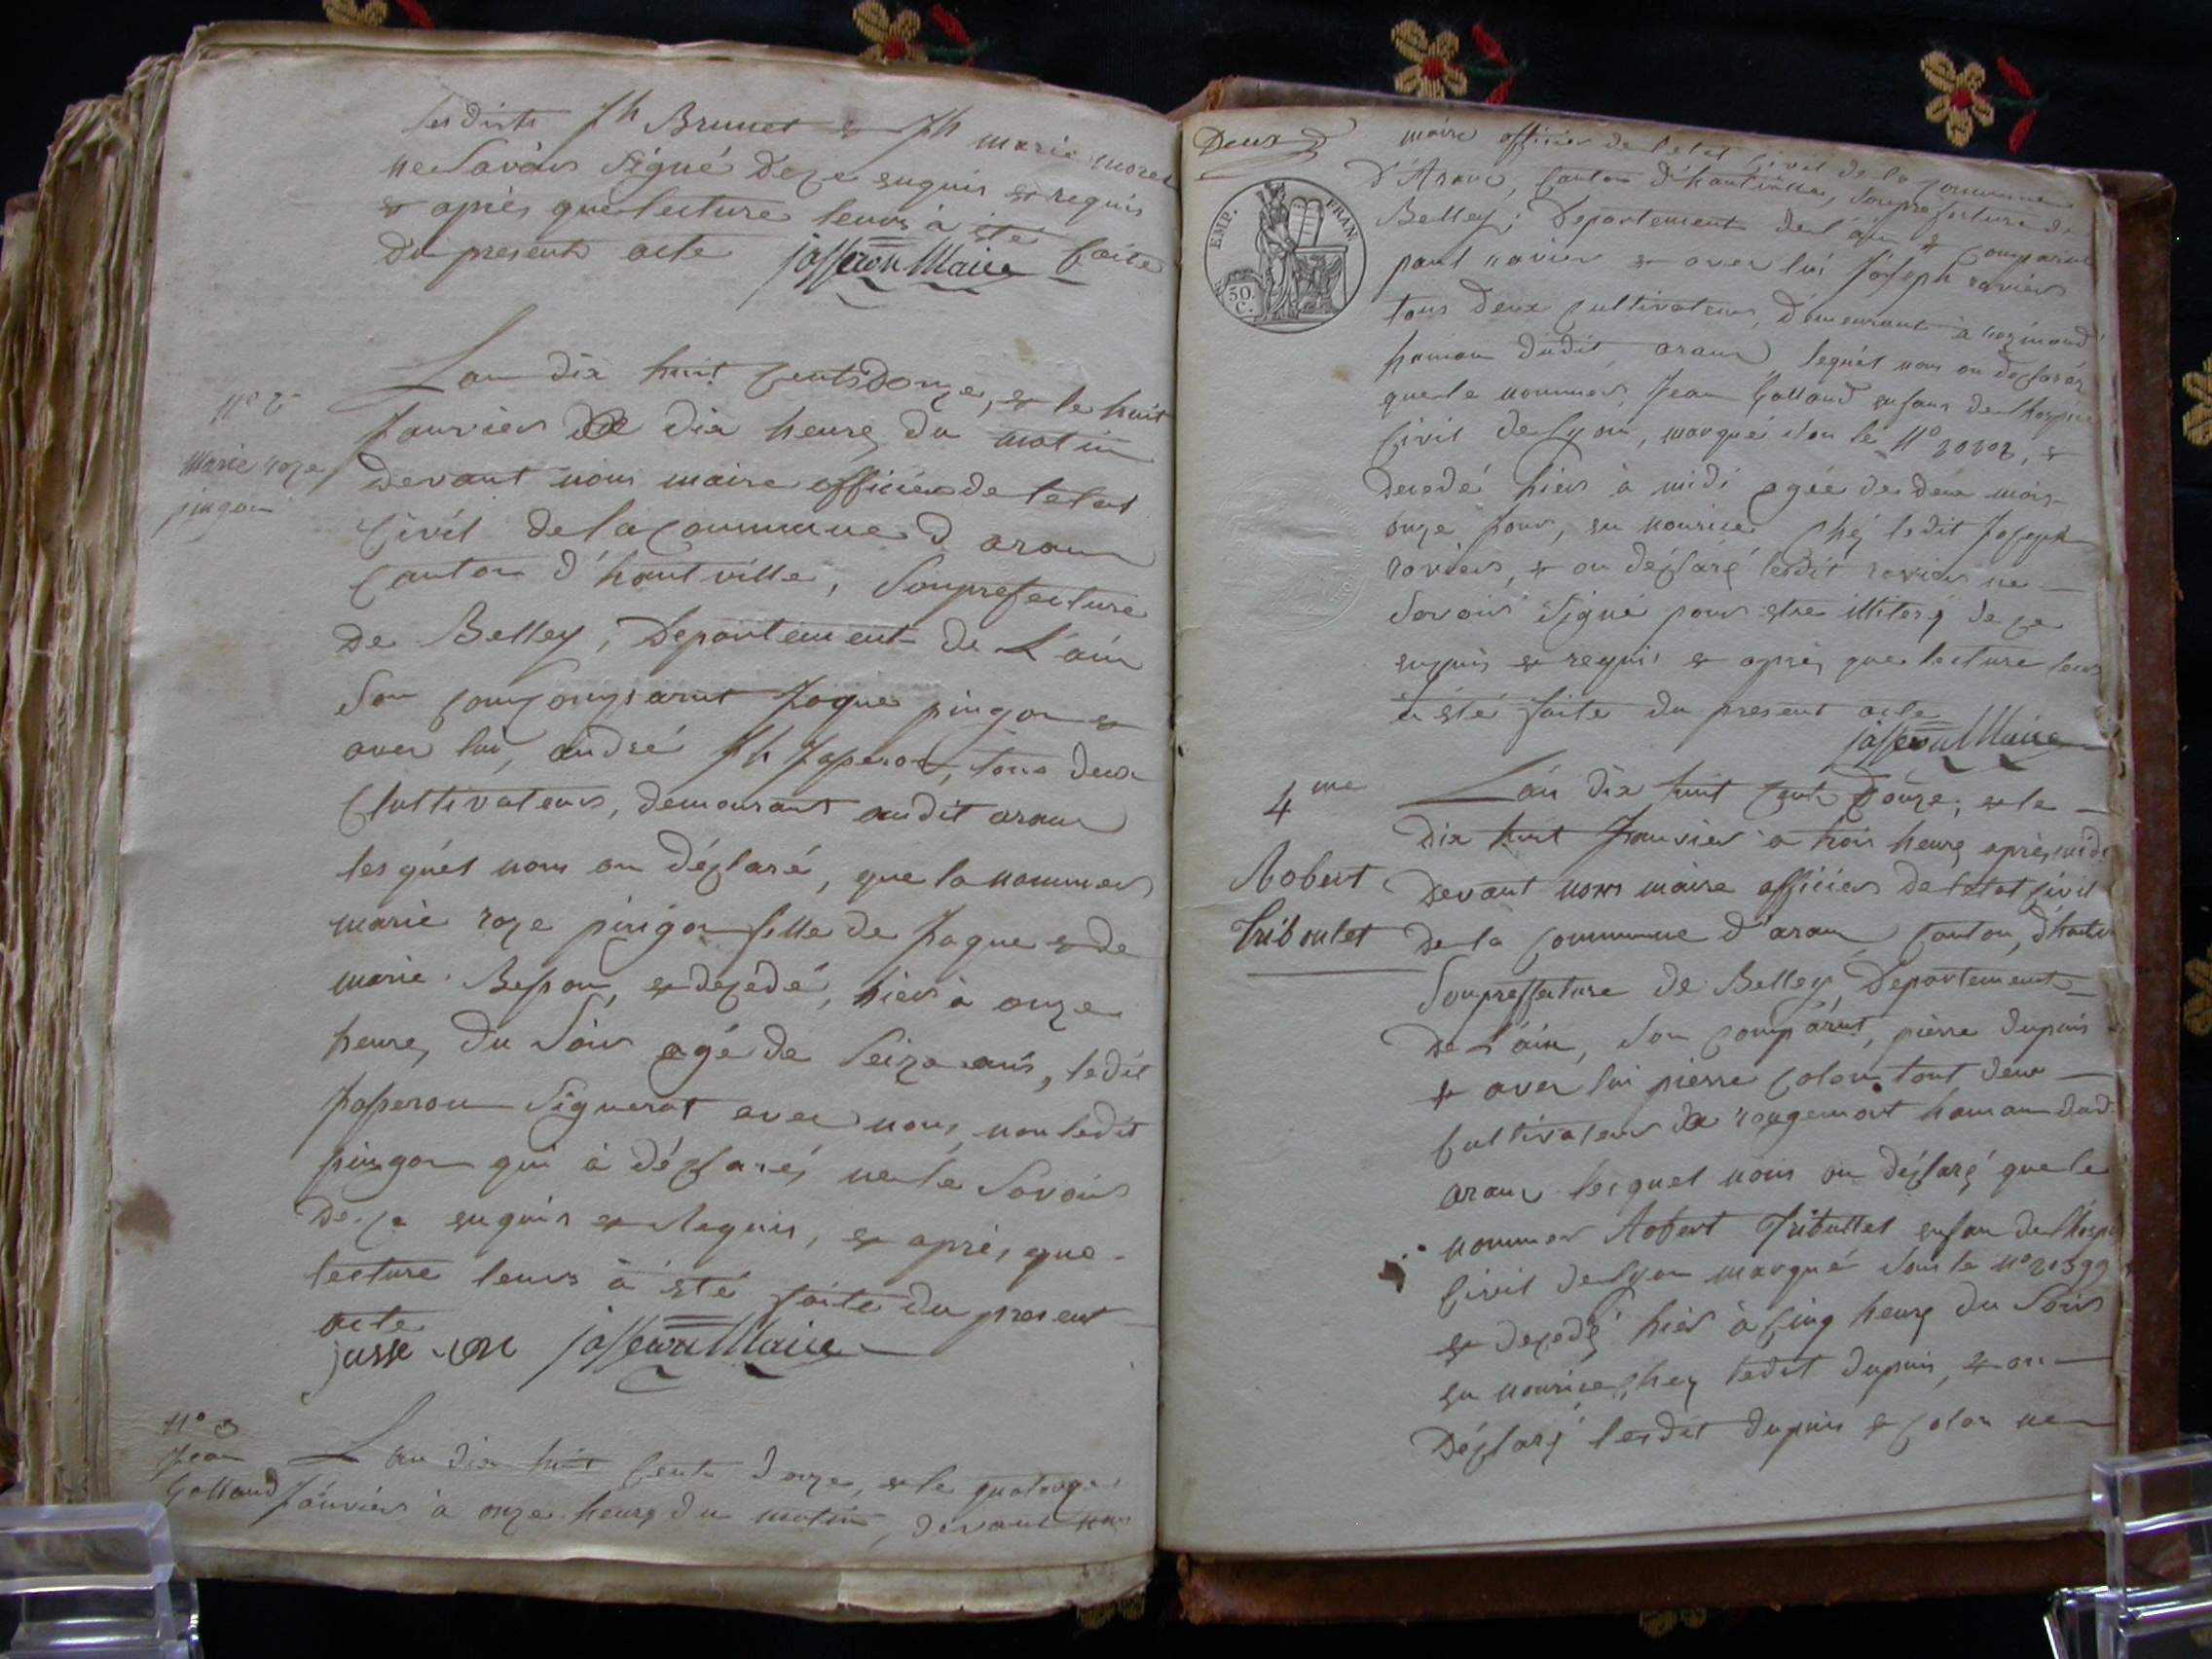 les dists jh Brunet & jh marie morel
ne savoirs signé de ce enquis & requis
& après que lecture leurs à été faite
du present acte jasseron Maire
n° 2
marie roze
pingon
Lan dix huit cents douze, & le huit
janviers à dix heures du matin
devant nous maire officiers de letat
civil de la commune d aranc
canton d'hautville, souprefecture
de Belley, Departement de L'ain
son comparut jaque pingon &
avec lui, andré jh jaseron, tous deux
cultivateurs, demeurant audit aranc
lesquel nous on déclaré, que la nommés
marie roze pingon fille de jaque & de
marie Besson, & decedé, hiers à onze
heures du soirs agé de seize ans, ledit
jasseron signerat avec nous, non ledit
pingon qui à déclarés ne le savoirs
de ce enquis & requis, & après que
lecture leurs à été faite du present
acte
jasse ron jasseron Maire
n° 3
jean
Galland
Lan dix huit cents douze, & le quatorze
janviers à onze heures du matin, devant nous
Deux
maire officiers de letat civil de la commune
d'Aranc, canton d'hautville, souprefecture de
Belley, Departement de l'ain & comparut
paul ravier & avec lui joseph raviers
tous deux cultivateurs, demeurant à rozmond
hamau dudit aranc lequel nous on declarés
que le nommés jean Galland enfans de lhospice
civil de lyon, marqué sou le n° 20202, &
decedé hiers à midi agée de deux mois
onze jours, en nourice chéz ledit joseph
raviers, & on déclaré lesdit raviers ne
savoirs signé pours etre illiteré de ce
enquis & requis & après que lecture leurs
à été faite du present acte
jasseron Maire
EMP. FRAN.
50.
C.
4me
Robert
Triboulet
Lan dix huit cents douze, & le
dix huit janvier à trois heures après midi
devant nous maire officiers de letat civil
de la commune d'aranc canton, d'hautv
souprefecture de Belley, Departement
de l'ain, son comparut, pièrre dupuis
& avec lui pièrre colon tout deux
cultivateurs de rougemont hamau dud
aranc lesquel nous on déclaré que le
nommés Robert Tribullet enfan de lhospi
civil de lyon marqué sous le n° 20399
& decedé hiers à cinq heures du soirs
en nourice chez ledit dupuis, & on
déclaré lesdit dupuis & colon ne